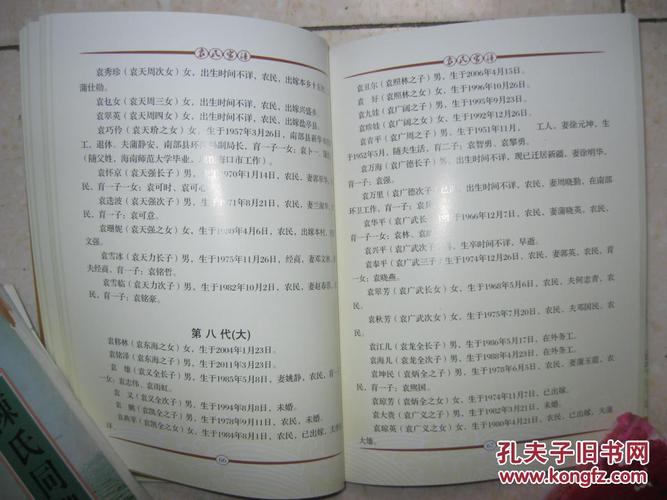 袁氏宗谱
袁秀珍（袁天周次女）女，出生时间不详，农民，出嫁本乡十五村，
蒲仕勋。
袁乜女（袁天周三女）女，出生时间不详，农民，出嫁兴盛乡
袁翠英（袁天周四女）女，出生时间不详，农民，出嫁盐亭县
袁巧伶（袁天矫之女）女，生于1957年3月26日，南部县新华
工，退休。夫蒲静安，南部县环 副局长，育一子一女：袁卜一、蒲
（随父姓，海南师范大学毕业。 海口市工作）。
袁怀京（袁天强长子）男，生于1970年1月14日，农民，妻郭
育一子一女：袁可时、袁可心
袁选波（袁天强次子）男，生于1971年8月21日，农民，妻兰
育一子：袁可意。
袁珊妮（袁天强之女）女，生于1980年4月6日，农民，出嫁本村，
文强。
袁雪冰（袁天力长子）男，生于1975年11月26日，经商，妻邓文
夫经商，育一子：袁铭哲。
袁雪临（袁天力次子）男，生于1982年10月2日，农民，妻赵春蓉，
民，育一子：袁铭豪。
第八代(大)
袁移林（袁东海之女）女，生于2004年1月23日。
袁铭泽（袁东海之子）男，生于2011年3月23日。
袁 雄（袁义全长子）男，生于1985年5月8日，妻姚静，农民，育一
一女：袁志伟、袁雨虹。
袁 义（袁义全次子）男，生于1994年8月8日，未婚。
袁 鹏（袁凯全之子）男，生于1978年9月11日，农民，未婚。
袁燕平（袁凯全之女）女，生于1984年8月1日，农民，已出嫁，夫
洋。
66
袁氏宗谱
袁丑尔（袁照林之子）男，生于2006年4月15日。
袁 好（袁照林之女）女，生于1996年10月26日。
袁九娃（袁广阔之子）男，生于1995年9月23日。
袁珍娃（袁广阔之女）女，生于1992年12月26日。
袁青平（袁广周之子）男，生于1951年11月， 工人，妻徐元坤，生
于1952年5月，随夫生活，育二子：袁智勇、袁攀勇。
袁万海（袁广德长子）男，出生时间不详，现已迁居新疆，妻徐明华，
育一子：袁强。
袁万里（袁广德次子）男，出生时间不详，农民，妻周晓勤，在南部
环卫工作，育一子：袁兵
袁华平（袁广武长子）男，生于1966年12月7日，农民，妻蒲晓英，农民，
育一子一女：袁林、袁
袁兴平（袁广武次子）男，生卒时间不详，早逝。
袁奉平（袁广武三子）男，生于1974年12月26日，农民，妻郭英，农民，育
一女：袁晓燕。
袁翠芳（袁广武长女）女，生于1968年5月6日，农民，夫何志青，农
民。
袁秋芳（袁广武次女）女，生于1975年7月20日，农民，夫邓国民，农
民。
袁江儿（袁龙全长子）男，生于1986年5月17日，在外务工。
袁海儿（袁龙全次子）男，生于 年10月8日，在外务工。
袁坤民（袁炳全之子）男，生于1978年6月5日，农民，妻蒲玉蓉，农
民，育一子：袁熙国。
袁琼芳（袁炳全之女）女，生于1974年11月7日，已出嫁。
袁大贵（袁广义之子）男，生于1982年3月21日，未婚。
袁琼英（袁广义之女）女，生于1980年4月21日，农民，已出嫁，夫蒲
大雄。
陈氏同
孔夫子旧书网